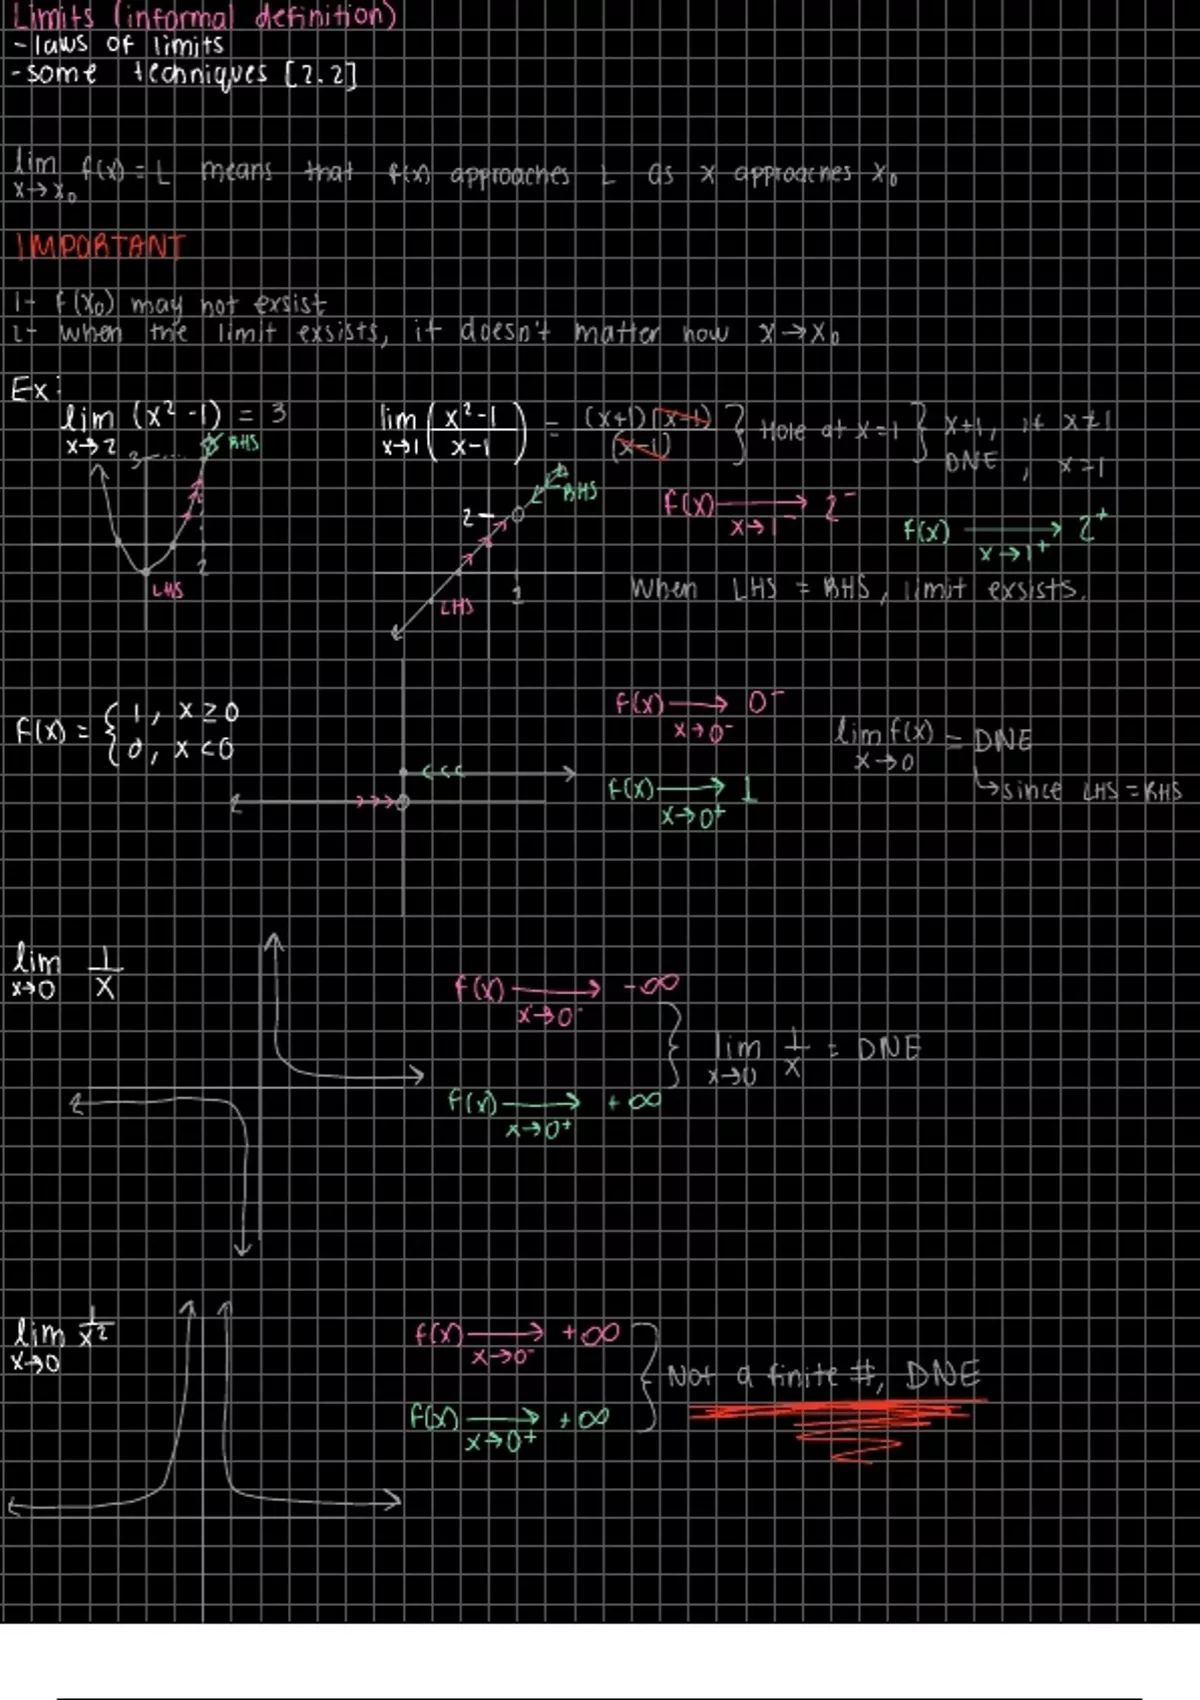 Limits (informal definition)
-laws of limits
-some techniques [2.2]
lim x→x₀ f(x) = L means that f(x) approaches L as x approaches x₀
IMPORTANT
1- f(x₀) may not exsist
2- when the limit exsists, it doesn't matter how x→x₀
Ex:
lim x→2 (x²-1) = 3
3 RHS
2
LHS
lim x→1 (x²-1 / x-1) = (x+1)(x-1) / (x-1) } Hole at x=1 } x+1, if x≠1
DNE, x=1
2 RHS
1
LHS
f(x) → 2⁻ x→1⁻
f(x) → 2⁺ x→1⁺
When LHS = RHS, limit exsists.
f(x) = { 1, x≥0
0, x<0
f(x) → 0⁻ x→0⁻
f(x) → 1 x→0⁺
lim x→0 f(x) = DNE
↳ since LHS = RHS
lim x→0 1/x
f(x) → -∞ x→0⁻
f(x) → +∞ x→0⁺
} lim x→0 1/x = DNE
lim x→0 1/x²
f(x) → +∞ x→0⁻
f(x) → +∞ x→0⁺
} Not a finite #, DNE